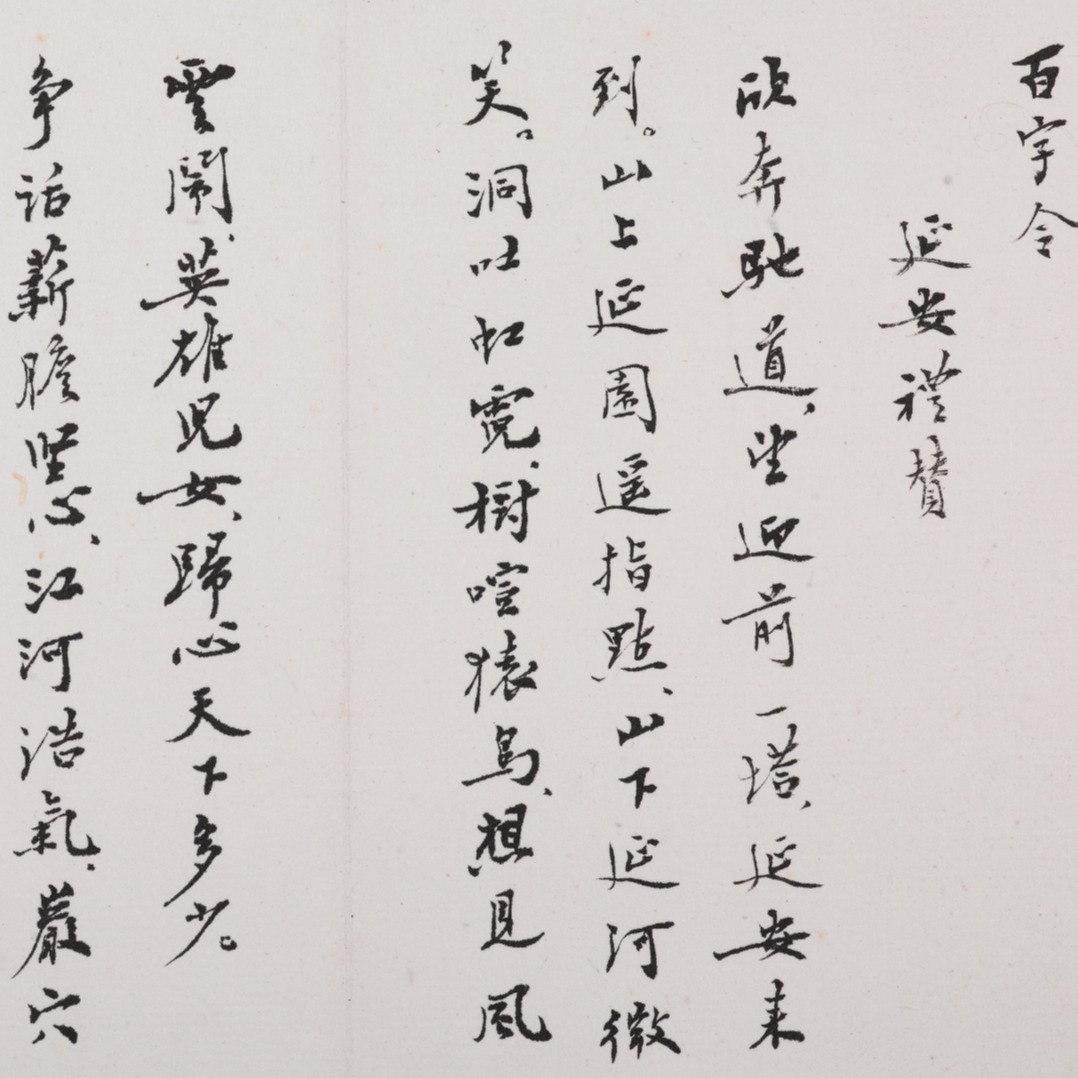 百字令
延安禮贊
欣奔馳道、望迎前一塔、延安来
到。山上延園遥指點、山下延河微
笑。洞吐虹霓、樹喧猿鳥、想見風
雲鬧、英雄児女、歸心天下多少。
争話薪膽堅心、江河浩氣、巖穴